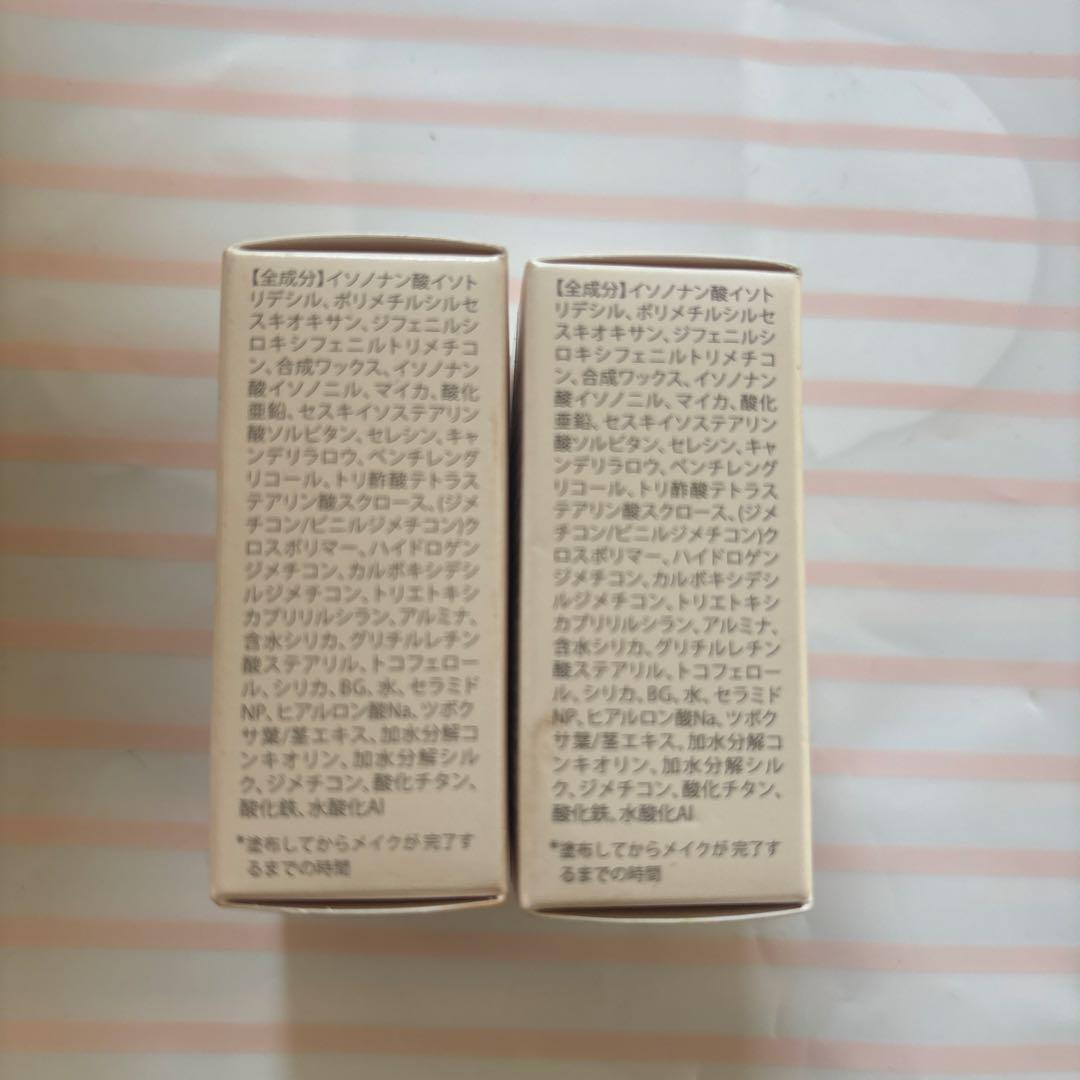 【全成分】イソノナン酸イソト
リデシル、ポリメチルシルセ
スキオキサン、ジフェニルシ
ロキシフェニルトリメチコ
ン、合成ワックス、イソノナン
酸イソノニル、マイカ、酸化
亜鉛、セスキイソステアリン
酸ソルビタン、セレシン、キャ
ンデリラロウ、ペンチレング
リコール、トリ酢酸テトラス
テアリン酸スクロース、(ジメ
チコン/ビニルジメチコン)ク
ロスポリマー、ハイドロゲン
ジメチコン、カルボキシデシ
ルジメチコン、トリエトキシ
カプリリルシラン、アルミナ、
含水シリカ、グリチルレチン
酸ステアリル、トコフェロー
ル、シリカ、BG、水、セラミド
NP、ヒアルロン酸Na、ツボク
サ葉/茎エキス、加水分解コ
ンキオリン、加水分解シル
ク、ジメチコン、酸化チタン、
酸化鉄、水酸化Al
*塗布してからメイクが完了す
るまでの時間
【全成分】イソノナン酸イソト
リデシル、ポリメチルシルセ
スキオキサン、ジフェニルシ
ロキシフェニルトリメチコ
ン、合成ワックス、イソノナン
酸イソノニル、マイカ、酸化
亜鉛、セスキイソステアリン
酸ソルビタン、セレシン、キャ
ンデリラロウ、ペンチレング
リコール、トリ酢酸テトラス
テアリン酸スクロース、(ジメ
チコン/ビニルジメチコン)ク
ロスポリマー、ハイドロゲン
ジメチコン、カルボキシデシ
ルジメチコン、トリエトキシ
カプリリルシラン、アルミナ、
含水シリカ、グリチルレチン
酸ステアリル、トコフェロー
ル、シリカ、BG、水、セラミド
NP、ヒアルロン酸Na、ツボク
サ葉/茎エキス、加水分解コ
ンキオリン、加水分解シル
ク、ジメチコン、酸化チタン、
酸化鉄、水酸化Al
*塗布してからメイクが完了す
るまでの時間